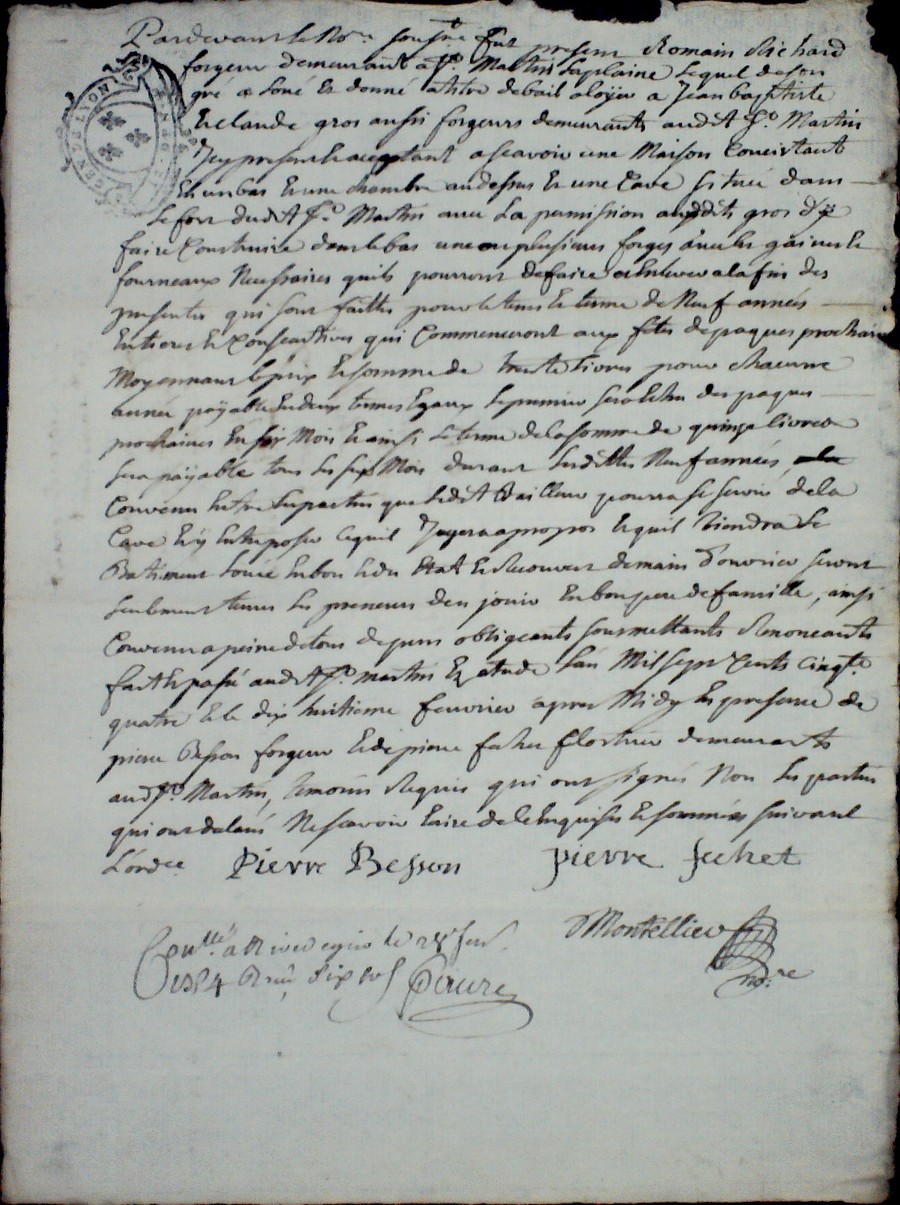 Pardevant le No.re sousig.né fut present Romain Richard
forgeur demeurant a S.t Martin Laplaine lequel de son
gré a loué et donné a titre de bail a loÿer a Jean baptiste
et claude gros aussi forgeurs demeurants audit S.t Martin
Icy present et acceptant a scavoir une Maison Concistant
En un bas et une chambre au dessus et une Cave scituée dans
Le fort dudit S.t Martin avec la permission auxdits gros d'y
faire Construire dans le bas une ou plusieurs forges avec les gaines et
fourneaux Necessaires quils pourront defaire et Enlever a la fin des
presentes qui sont faittes pour le tems et terme de Neuf années
Entieres et Consecutives qui Commenceront aux fetes de paques prochaines
Moyennant le prix et somme de trente livres pour chacune
année payable En deux termes Egaux le premier sera des paques
prochaines En six Mois et ainsi le terme de la somme de quinze livres
sera payable tous les six Mois durant lesdittes Neuf années
Convenu Entre les parties que ledit Bailleur pourra se servir de la
Cave et y Entreposer ce quil Jugera a propos et quil tiendra le
Batiment loué En bon et du Etat et Recouvert de main d'ouvrier seront
seulement tenus les preneurs d'en jouir En bon pere de famille, ainsi
Convenu a peine de tous depens obligeants soumettants Renonceants
fait et passé audit S.t martin Etude l'an Mil sept Cents Cinqte
quatre et le dix huitieme fevrier apres Midy En presence de
pierre Besson forgeur et de pierre demeurants
aud. S.t Martin, temoins Requis qui ont signés Non les parties
qui ont declaré Ne scavoir faire de ce Enquises et sommées suivant
L'ordce Pierre Besson pierre
Montellier
no.re
Con.llé a Rivedegier le 28 fev.
1754 Reçu dix s.